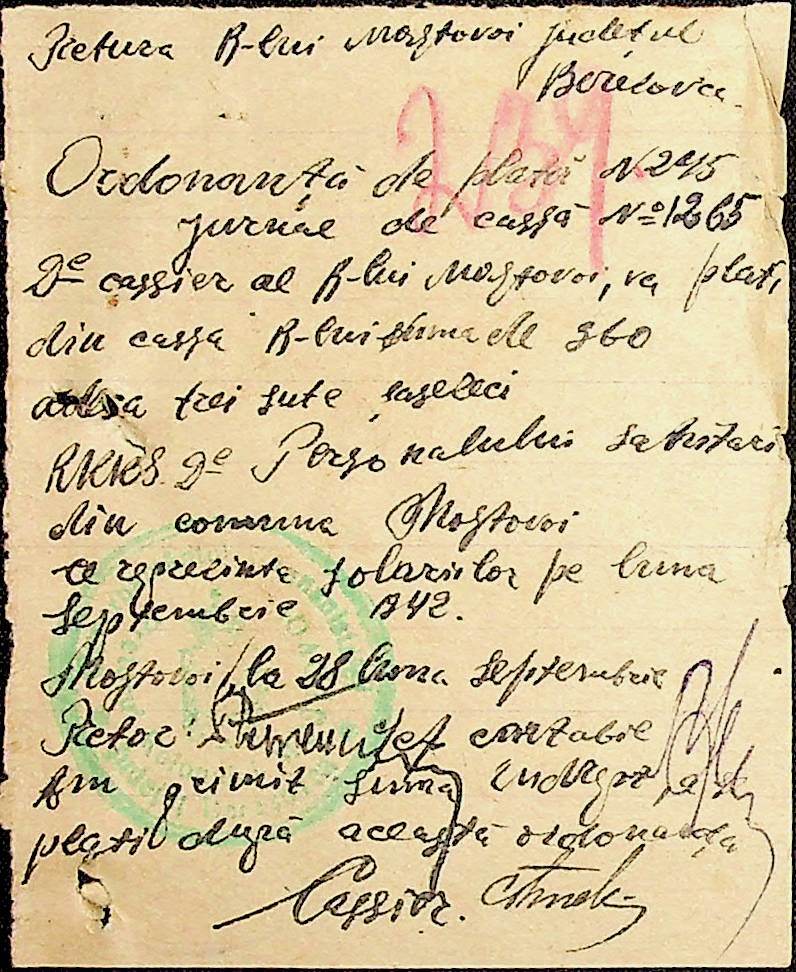 Pretura R-lui Mostovoi județul
Berezovca
259.
Ordonanță de plată N 245
jurnal de cassă No 1265
De cassier al R-lui Mostovoi, va plăti
din cassa R-lui suma de 360
adesa trei sute șasezeci
RKKS. De Personalului sanitari
din comuna Mostovoi
ce reprezinta solariilor pe luna
Septembrie 1942.
Mostovoi, la 28 luna Septembrie
Pretor: Șef contabil
Am primit suma
plăti după această ordonanța
Cassier.